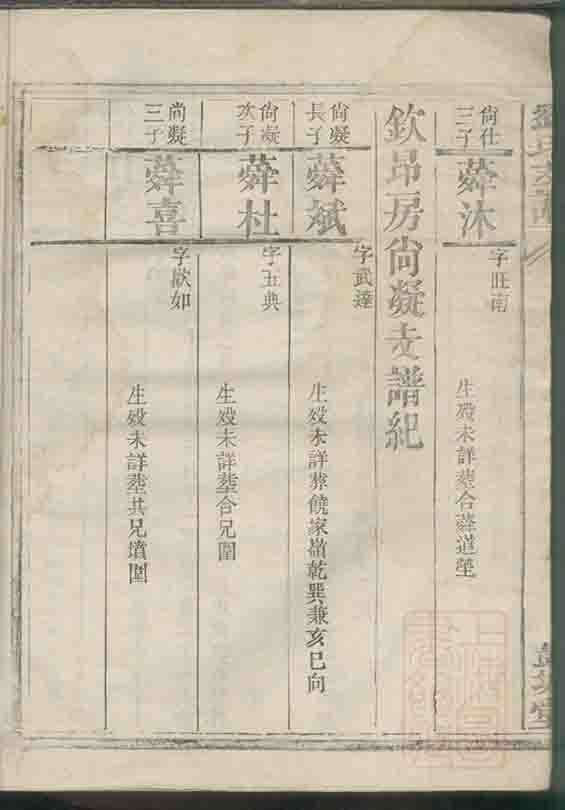 尙仕
三子
蕣沐
字旺南
生殁未詳塟合蕣道塋
欽昂房尙凝支譜紀
尙凝
長子
蕣斌
字武達
生殁未詳葬饒家嶺乾巽兼亥巳向
尙凝
次子
蕣杜
字五典
生殁未詳塟合兄圍
尙凝
三子
蕣喜
字歡如
生殁未詳塟共兄墳圍